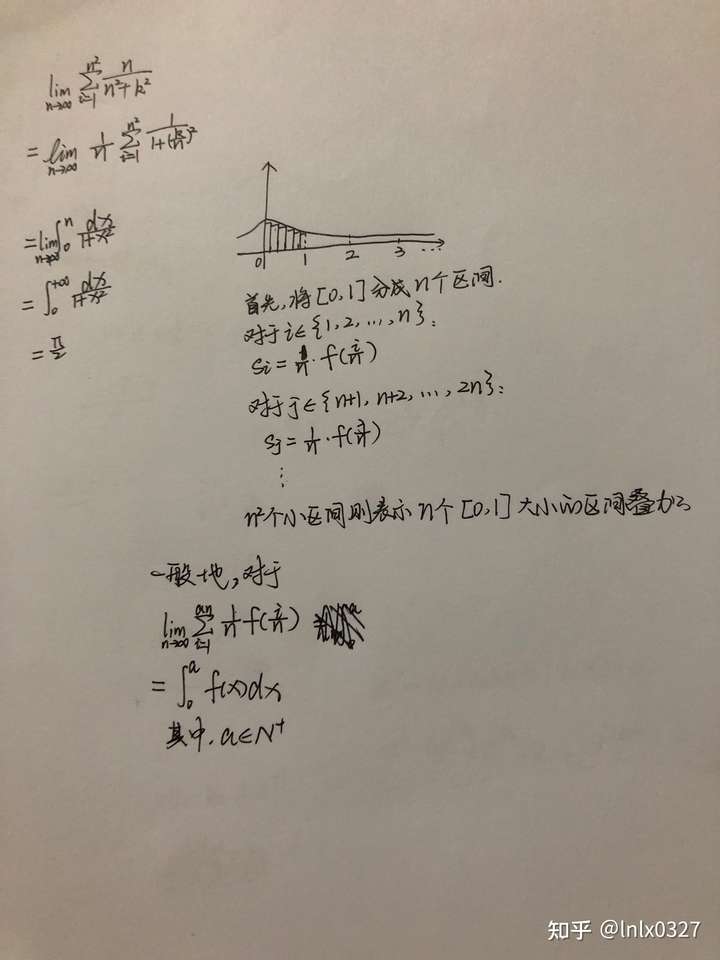 lim_{n→∞} ∑_{i=1}^{n²} n/(n²+k²)
= lim_{n→∞} 1/n ∑_{i=1}^{n²} 1/(1+(k/n)²)
= lim_{n→∞} ∫_0^n dx/(1+x²)
= ∫_0^{+∞} dx/(1+x²)
= π/2
0 1 2 3 ...
首先,将[0,1]分成n个区间.
对于i∈{1,2,...,n}:
Si = 1/n · f(i/n)
对于j∈{n+1, n+2, ..., 2n}:
Sj = 1/n · f(j/n)
⋮
n²个小区间则表示n个[0,1]大小的区间叠加
一般地,对于
lim_{n→∞} ∑_{i=1}^{an} 1/n f(i/n)
= ∫_0^a f(x)dx
其中,a∈N⁺
知乎 @lnlx0327